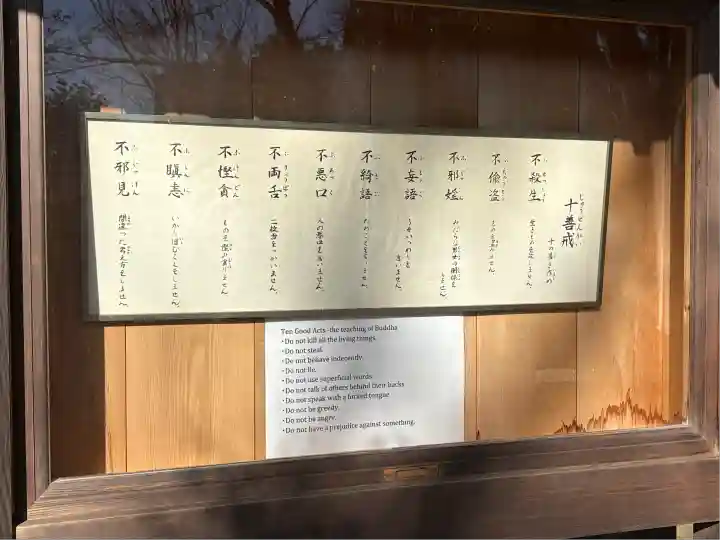 十善戒
じゅうぜんかい
十の善き戒め
不殺生
生きもの
不偸盗
ものを盗みません。
不邪婬
みだらな男女の関係を
しません。
不妄語
うそいつわりを
言いません。
不綺語
たわごとを言いません。
不悪口
人の悪口を言いません。
不両舌
二枚舌をつかいません。
不慳貪
ものを慳み貪りません。
不瞋恚
いかり
不邪見
間違った考え方をしません。
Ten Good Acts -the teaching of Buddha
・Do not kill all the living things.
・Do not steal.
・Do not behave indecently.
・Do not lie.
・Do not use superficial words.
・Do not talk of others behind their backs
・Do not speak with a forked tongue
・Do not be greedy.
・Do not be angry.
・Do not have a prejudice against something.